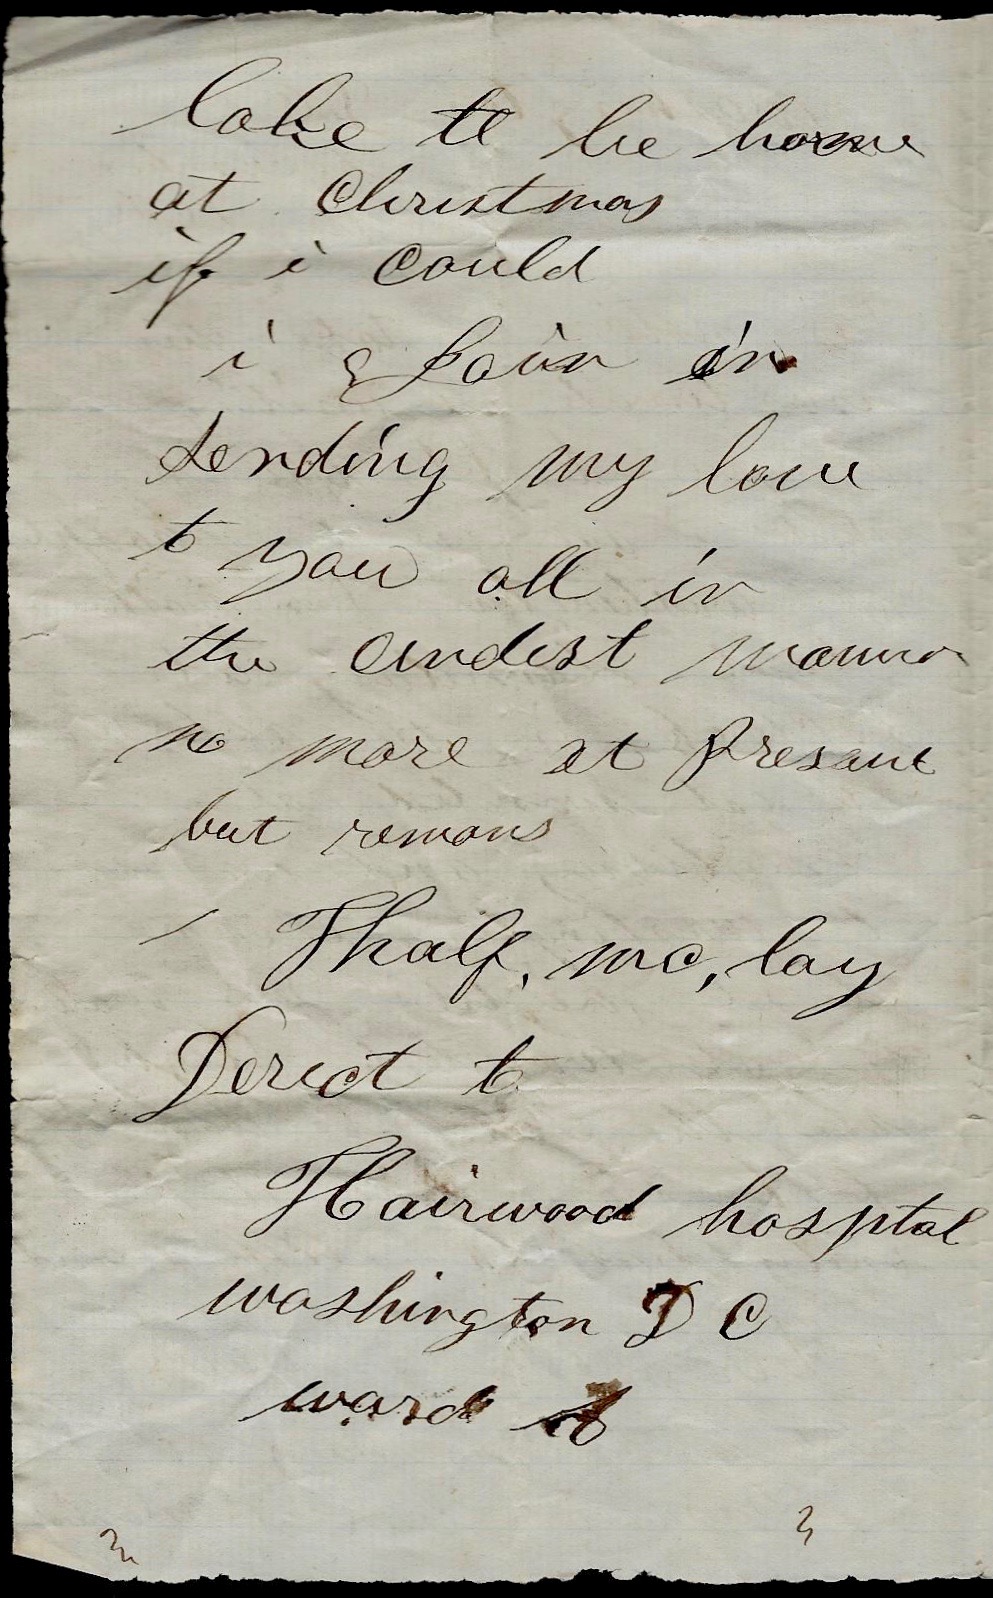 like to be home
at Christmas
if i could
i Join in
sending my love
to you all in
the cindest manner
no more at presant
but remans
Thalf, mc, lay
Derict to
Hairwood hosptal
washington D C
ward A